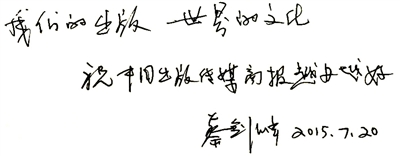 我们的出版 世界的文化
祝中国出版传媒商报越办越好
秦剑峰 2015.7.20